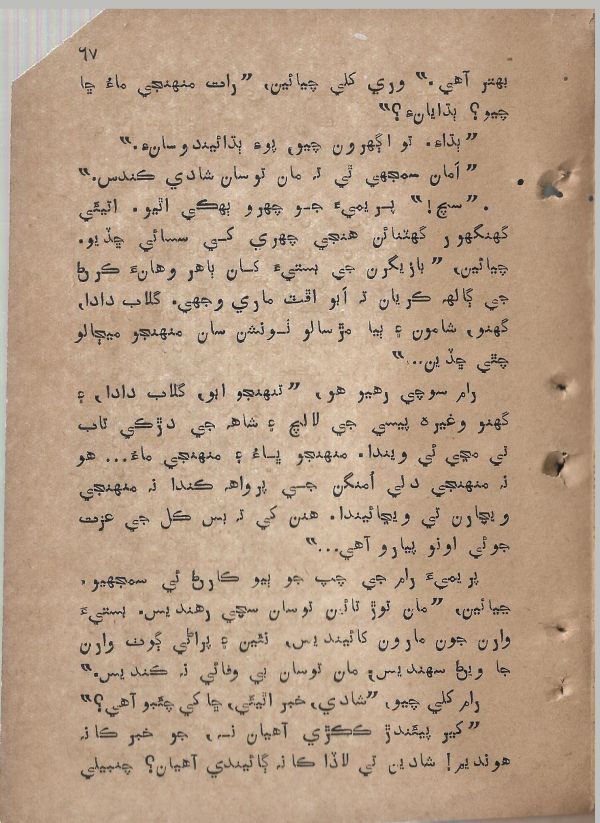 ٦٧
بهتر آهي.“ وري کلي چيائين، ”رات منهنجي ماءُ ڇا
چيو؟ ٻڌايانءِ؟“
”ٻڌاءِ. تو اڳهرون چيو، پوءِ ٻڌائيندوسانءِ.“
”اَمان سمجهي ٿي تہ مان توسان شادي ڪندس.“
”سچ!“ پريميءَ جو چهرو ٻهڪي اٿيو. اتيئي
گهنگهور گهٽنائن هنجي چهري کي سسائي ڇڏيو.
چيائين، ”بازيگرن جي بستيءَ کان ٻاهر وهانءُ ڪرڻ
جي ڳالهہ ڪريان تہ اَبو اڦٽ ماري وجهي. گلاب دادا،
گهنو، شامون ۽ ٻيا مڙسالو ٺونشن سان منهنجو ميڄالو
چٿي ڇڏين...“
رام سوچي رهيو هو، ”تنهنجو ابو، گلاب دادا، ۽
گهنو وغيره پيسي جي لالچ ۽ شاهہ جي دڙڪي تاب
تي مڃي ئي ويندا. منهنجو پيءُ ۽ منهنجي ماءُ... هو
نہ منهنجي دلي اُمنگن جي پرواهہ ڪندا نہ منهنجي
ويچارن تي ويچائيندا. هنن کي تہ بس ڪل جي عزت
جوئي اونو پيارو آهي...“
پريميءَ رام جي چپ جو ٻيو ڪارڻ ئي سمجهيو،
چيائين، ”مان توڙ تائين توسان سچي رهنديس. بستيءَ
وارن جون مارون کائينديس، نئين ۽ پراڻي ڳوٺ وارن
جا ويڻ سهنديس، مان توسان بي وفائي نہ ڪنديس.“
رام کلي چيو، ”شادي، خبر اٿيئي، ڇا کي چئبو آهي؟“
”کير پيئندڙ ڪڪڙي آهيان نہ، جو خبر ڪانہ
هونديم! شادين تي لاڏا ڪانہ ڳائيندي آهيان؟ چنبيلي